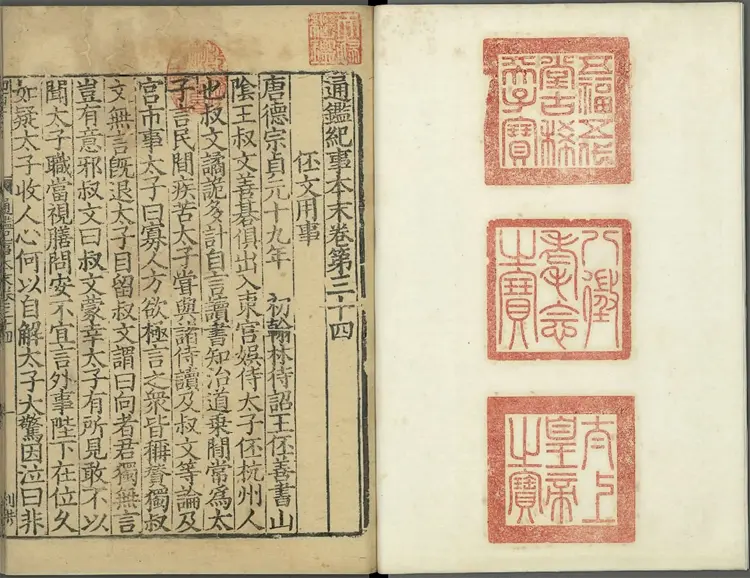 五福五代
堂古稀
天子寶
八徵
耄念
之寶
太上
皇帝
之寶
通鑑紀事本末卷第三十四
伾文用事
唐德宗貞元十九年 初翰林待詔王伾善書山
陰王叔文善碁俱出入東宮娛侍太子伾杭州人
也叔文譎詭多計自言讀書知治道乗間常為太
子言民間疾苦太子甞與諸侍讀及叔文等論及
宮市事太子曰寡人方欲極言之衆皆稱贊獨叔
文無言旣退太子自留叔文謂曰向者君獨無言
豈有意邪叔文曰叔文蒙幸太子有所見敢不以
聞太子職當視膳問安不宜言外事陛下在位久
如疑太子收人心何以自解太子大驚因泣曰非